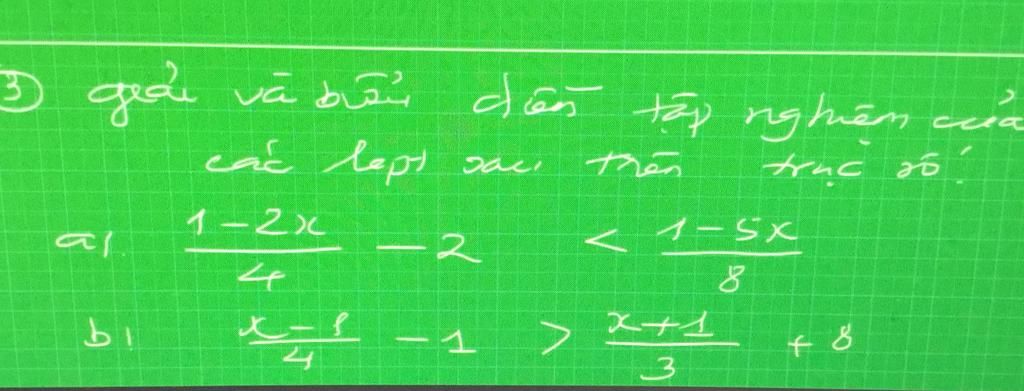 3 giải và biểu diễn tập nghiệm của
các bpt sau trên trục số:
a) (1-2x)/4 - 2 < (1-5x)/8
b) (x-1)/4 - 1 > (x+1)/3 + 8